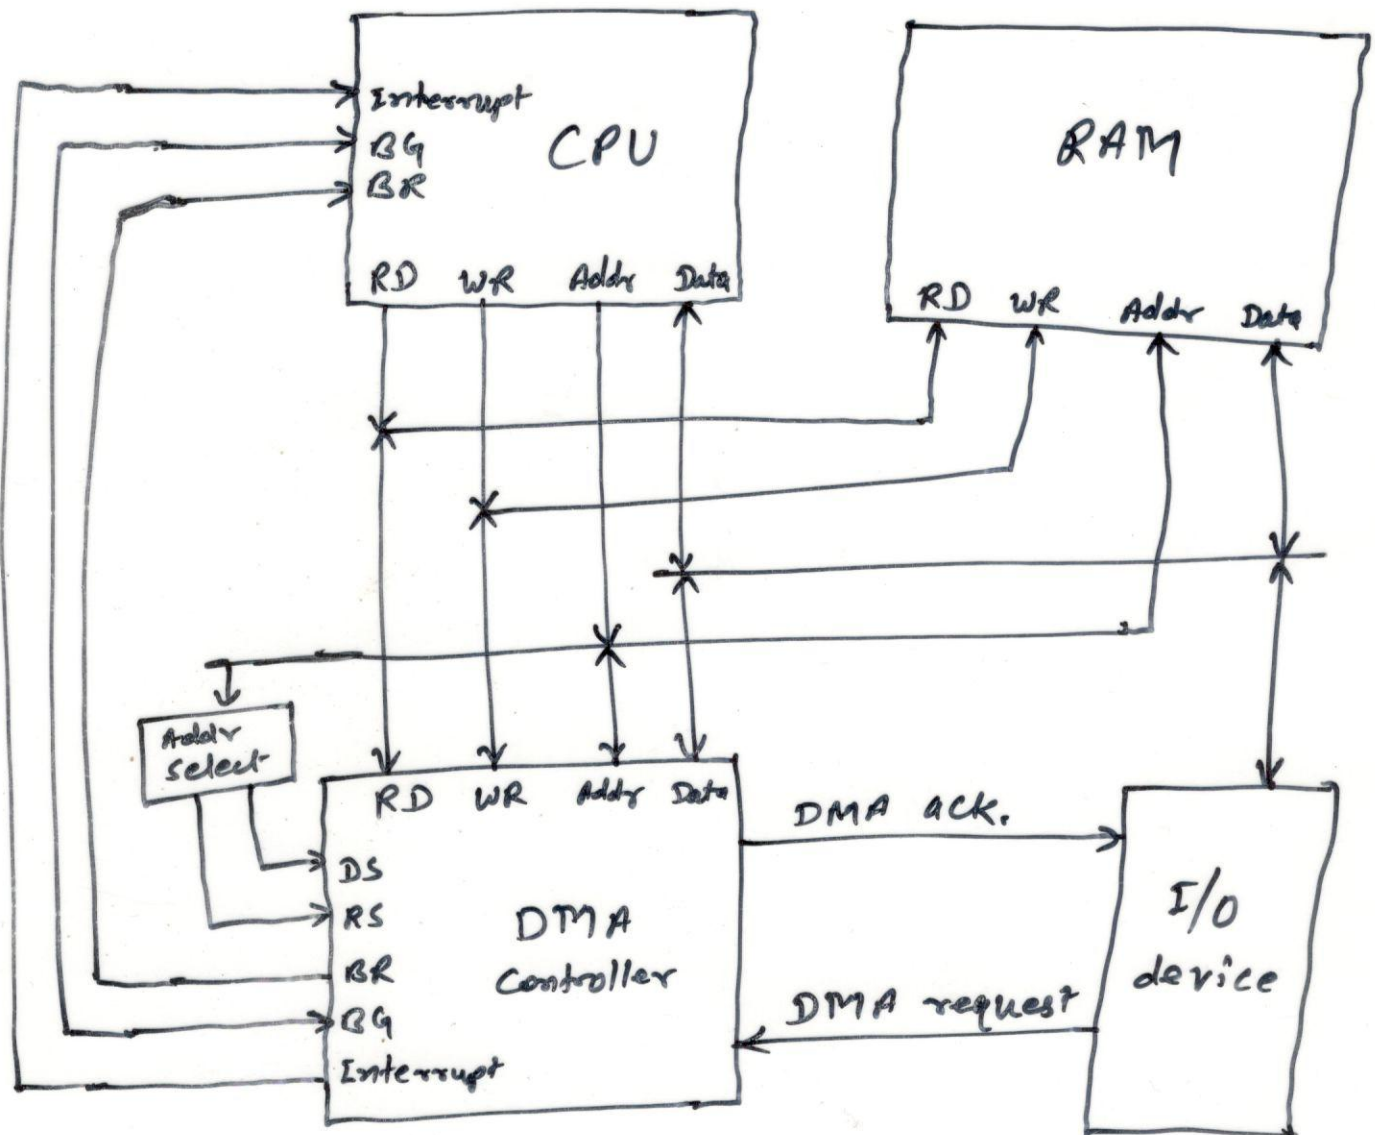 Interrupt
BG
BR
CPU
RD WR Addr Data
RAM
RD WR Addr Data
Addr
select
RD WR Addr Data
DS
RS
BR
BG
Interrupt
DMA
Controller
DMA ack.
DMA request
I/O
device